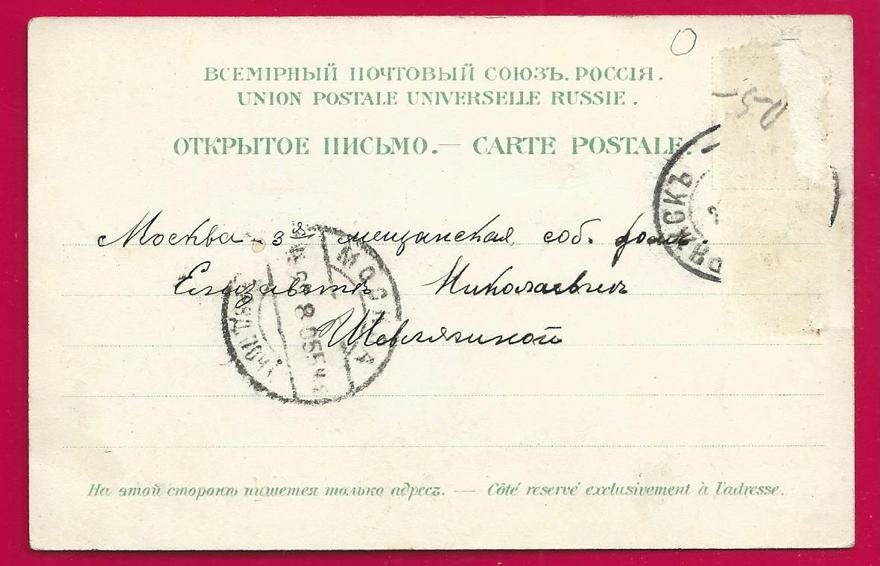 ВСЕМІРНЫЙ ПОЧТОВЫЙ СОЮЗЪ. РОССІЯ.
UNION POSTALE UNIVERSELLE RUSSIE.
ОТКРЫТОЕ ПИСЬМО.— CARTE POSTALE.
Москва - 3я мещанская соб. домъ
Елизаветѣ Николаевнѣ
Шевлягиной
МОСКВА
На этой сторонѣ пишется только адресъ. — Côté reservé exclusivement à l'adresse.